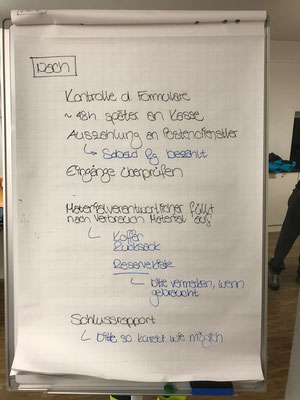 Nach
Kontrolle d. Formulare
~ 48h später an Kasse
Auszahlung an Postendienstler
↳ Sobald Rg bezahlt
Eingänge überprüfen
Materialverantwortlicher füllt
nach Verbrauch Material aus
↳ Koffer
Rucksack
Reservekiste
↳ bitte vermerken, wenn
gebraucht
Schlussrapport
↳ bitte so korrekt wie möglich